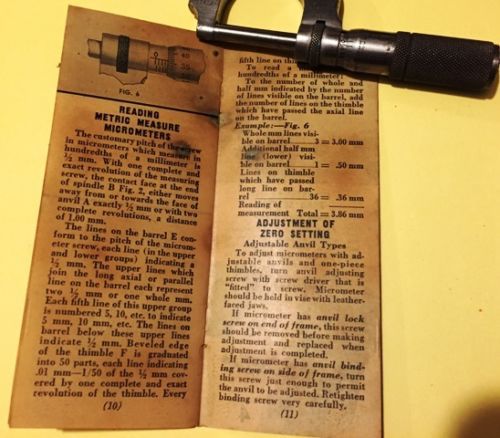 0
40
35
FIG. 6
READING
METRIC MEASURE
MICROMETERS
The customary pitch of the screw
in micrometers which measure in
hundredths of a millimeter is
½ mm. With one complete and
exact revolution of the measuring
screw, the contact face at the end
of spindle B Fig. 2, either moves
away from or towards the face of
anvil A exactly ½ mm or with two
complete revolutions, a distance
of 1.00 mm.
The lines on the barrel E con-
form to the pitch of the microm-
eter screw, each line (in the upper
and lower groups) indicating a
½ mm. The upper lines which
join the long axial or parallel
line on the barrel each represent
two ½ mm or one whole mm.
Each fifth line of this upper group
is numbered 5, 10, etc. to indicate
5 mm, 10 mm, etc. The lines on
barrel below these upper lines
indicate ½ mm. Beveled edge
of the thimble F is graduated
into 50 parts, each line indicating
.01 mm—1/50 of the ½ mm cov-
ered by one complete and exact
revolution of the thimble. Every
(10)
fifth line on
To read a
hundredths of a millimeter:
To the number of whole and
half mm indicated by the number
of lines visible on the barrel, add
the number of lines on the thimble
which have passed the axial line
on the barrel.
Example:—Fig. 6
Whole mm lines visi-
ble on barrel 3 = 3.00 mm
Additional half mm
line (lower) visi-
ble on barrel 1 = .50 mm
Lines on thimble
which have passed
long line on bar-
rel 36 = .36 mm
Reading of
measurement Total = 3.86 mm
ADJUSTMENT OF
ZERO SETTING
Adjustable Anvil Types
To adjust micrometers with ad-
justable anvils and one-piece
thimbles, turn anvil adjusting
screw with screw driver that is
"fitted" to screw. Micrometer
should be held in vise with leather-
faced jaws.
If micrometer has anvil lock
screw on end of frame, this screw
should be removed before making
adjustment and replaced when
adjustment is completed.
If micrometer has anvil bind-
ing screw on side of frame, turn
this screw just enough to permit
the anvil to be adjusted. Retighten
binding screw very carefully.
(11)